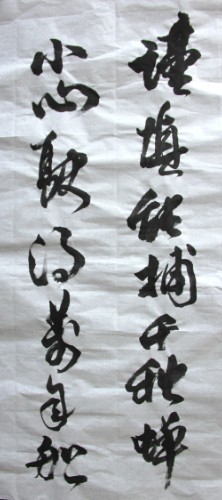 谨慎能捕千秋蝉
小心驶得萬年船